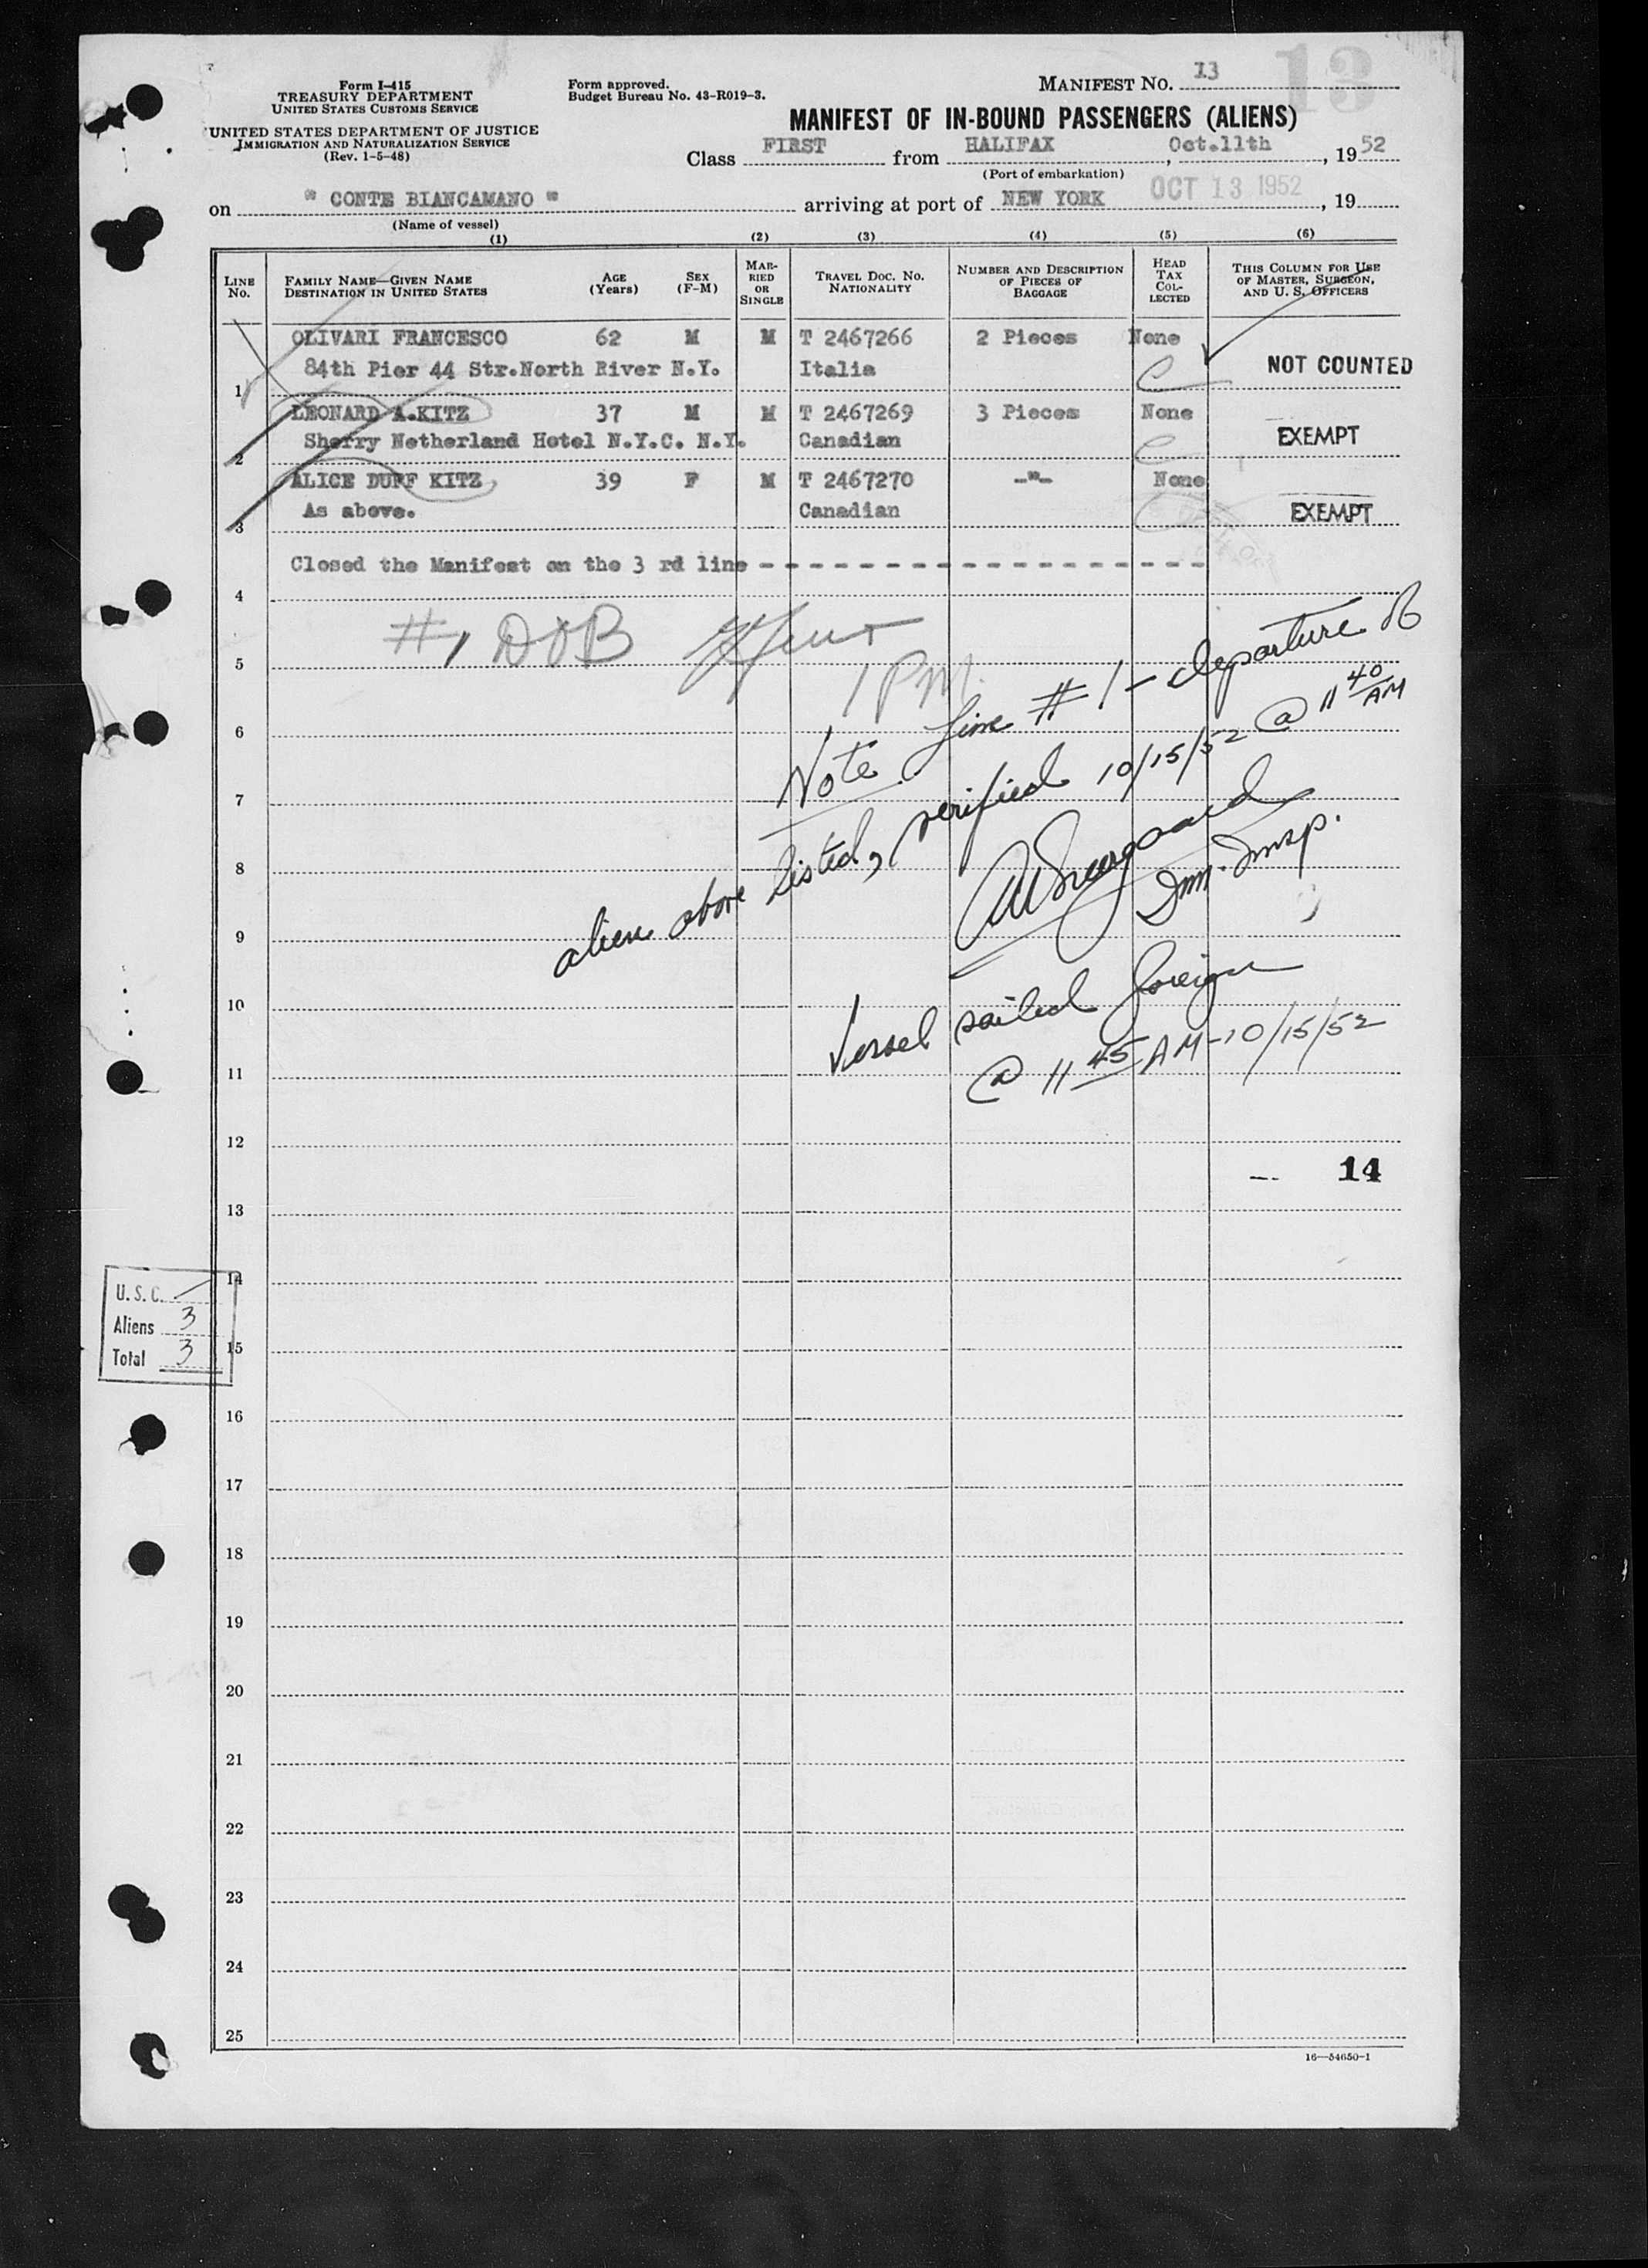 Form I-415
TREASURY DEPARTMENT
UNITED STATES CUSTOMS SERVICE
UNITED STATES DEPARTMENT OF JUSTICE
IMMIGRATION AND NATURALIZATION SERVICE
(Rev. 1-5-48)
Form approved.
Budget Bureau No. 43-R019-3.
MANIFEST NO. 13
13
MANIFEST OF IN-BOUND PASSENGERS (ALIENS)
Class FIRST from HALIFAX, Oct.11th, 1952
(Port of embarkation)
on " CONTE BIANCAMANO " arriving at port of NEW YORK OCT 13 1952, 19
(Name of vessel)
(1) (2) (3) (4) (5) (6)
LINE No. FAMILY NAME—GIVEN NAME DESTINATION IN UNITED STATES AGE (Years) SEX (F-M) MARRIED OR SINGLE TRAVEL DOC. NO. NATIONALITY NUMBER AND DESCRIPTION OF PIECES OF BAGGAGE HEAD TAX COLLECTED THIS COLUMN FOR USE OF MASTER, SURGEON, AND U. S. OFFICERS
OLIVARI FRANCESCO 62 M M T 2467266 2 Pieces None
84th Pier 44 Str.North River N.Y. Italia NOT COUNTED
1
LEONARD A.KITZ 37 M M T 2467269 3 Pieces None
Sherry Netherland Hotel N.Y.C. N.Y. Canadian EXEMPT
2
ALICE DUFF KITZ 39 F M T 2467270 -"- None
As above. Canadian EXEMPT
3
Closed the Manifest on the 3 rd line - - - - - - - - - - - - - - - - - - - -
4
#1 DOB
5
1 PM.
Note Line #1 - departure of
6
alien above listed, verified 10/15/52 @ 11 40 AM
7
8
Imm. Insp.
9
Vessel sailed foreign
10
@ 11 45 AM-10/15/52
11
12
14
13
14
U. S. C. -
Aliens 3
Total 3
15
16
17
18
19
20
21
22
23
24
25
16—54650-1